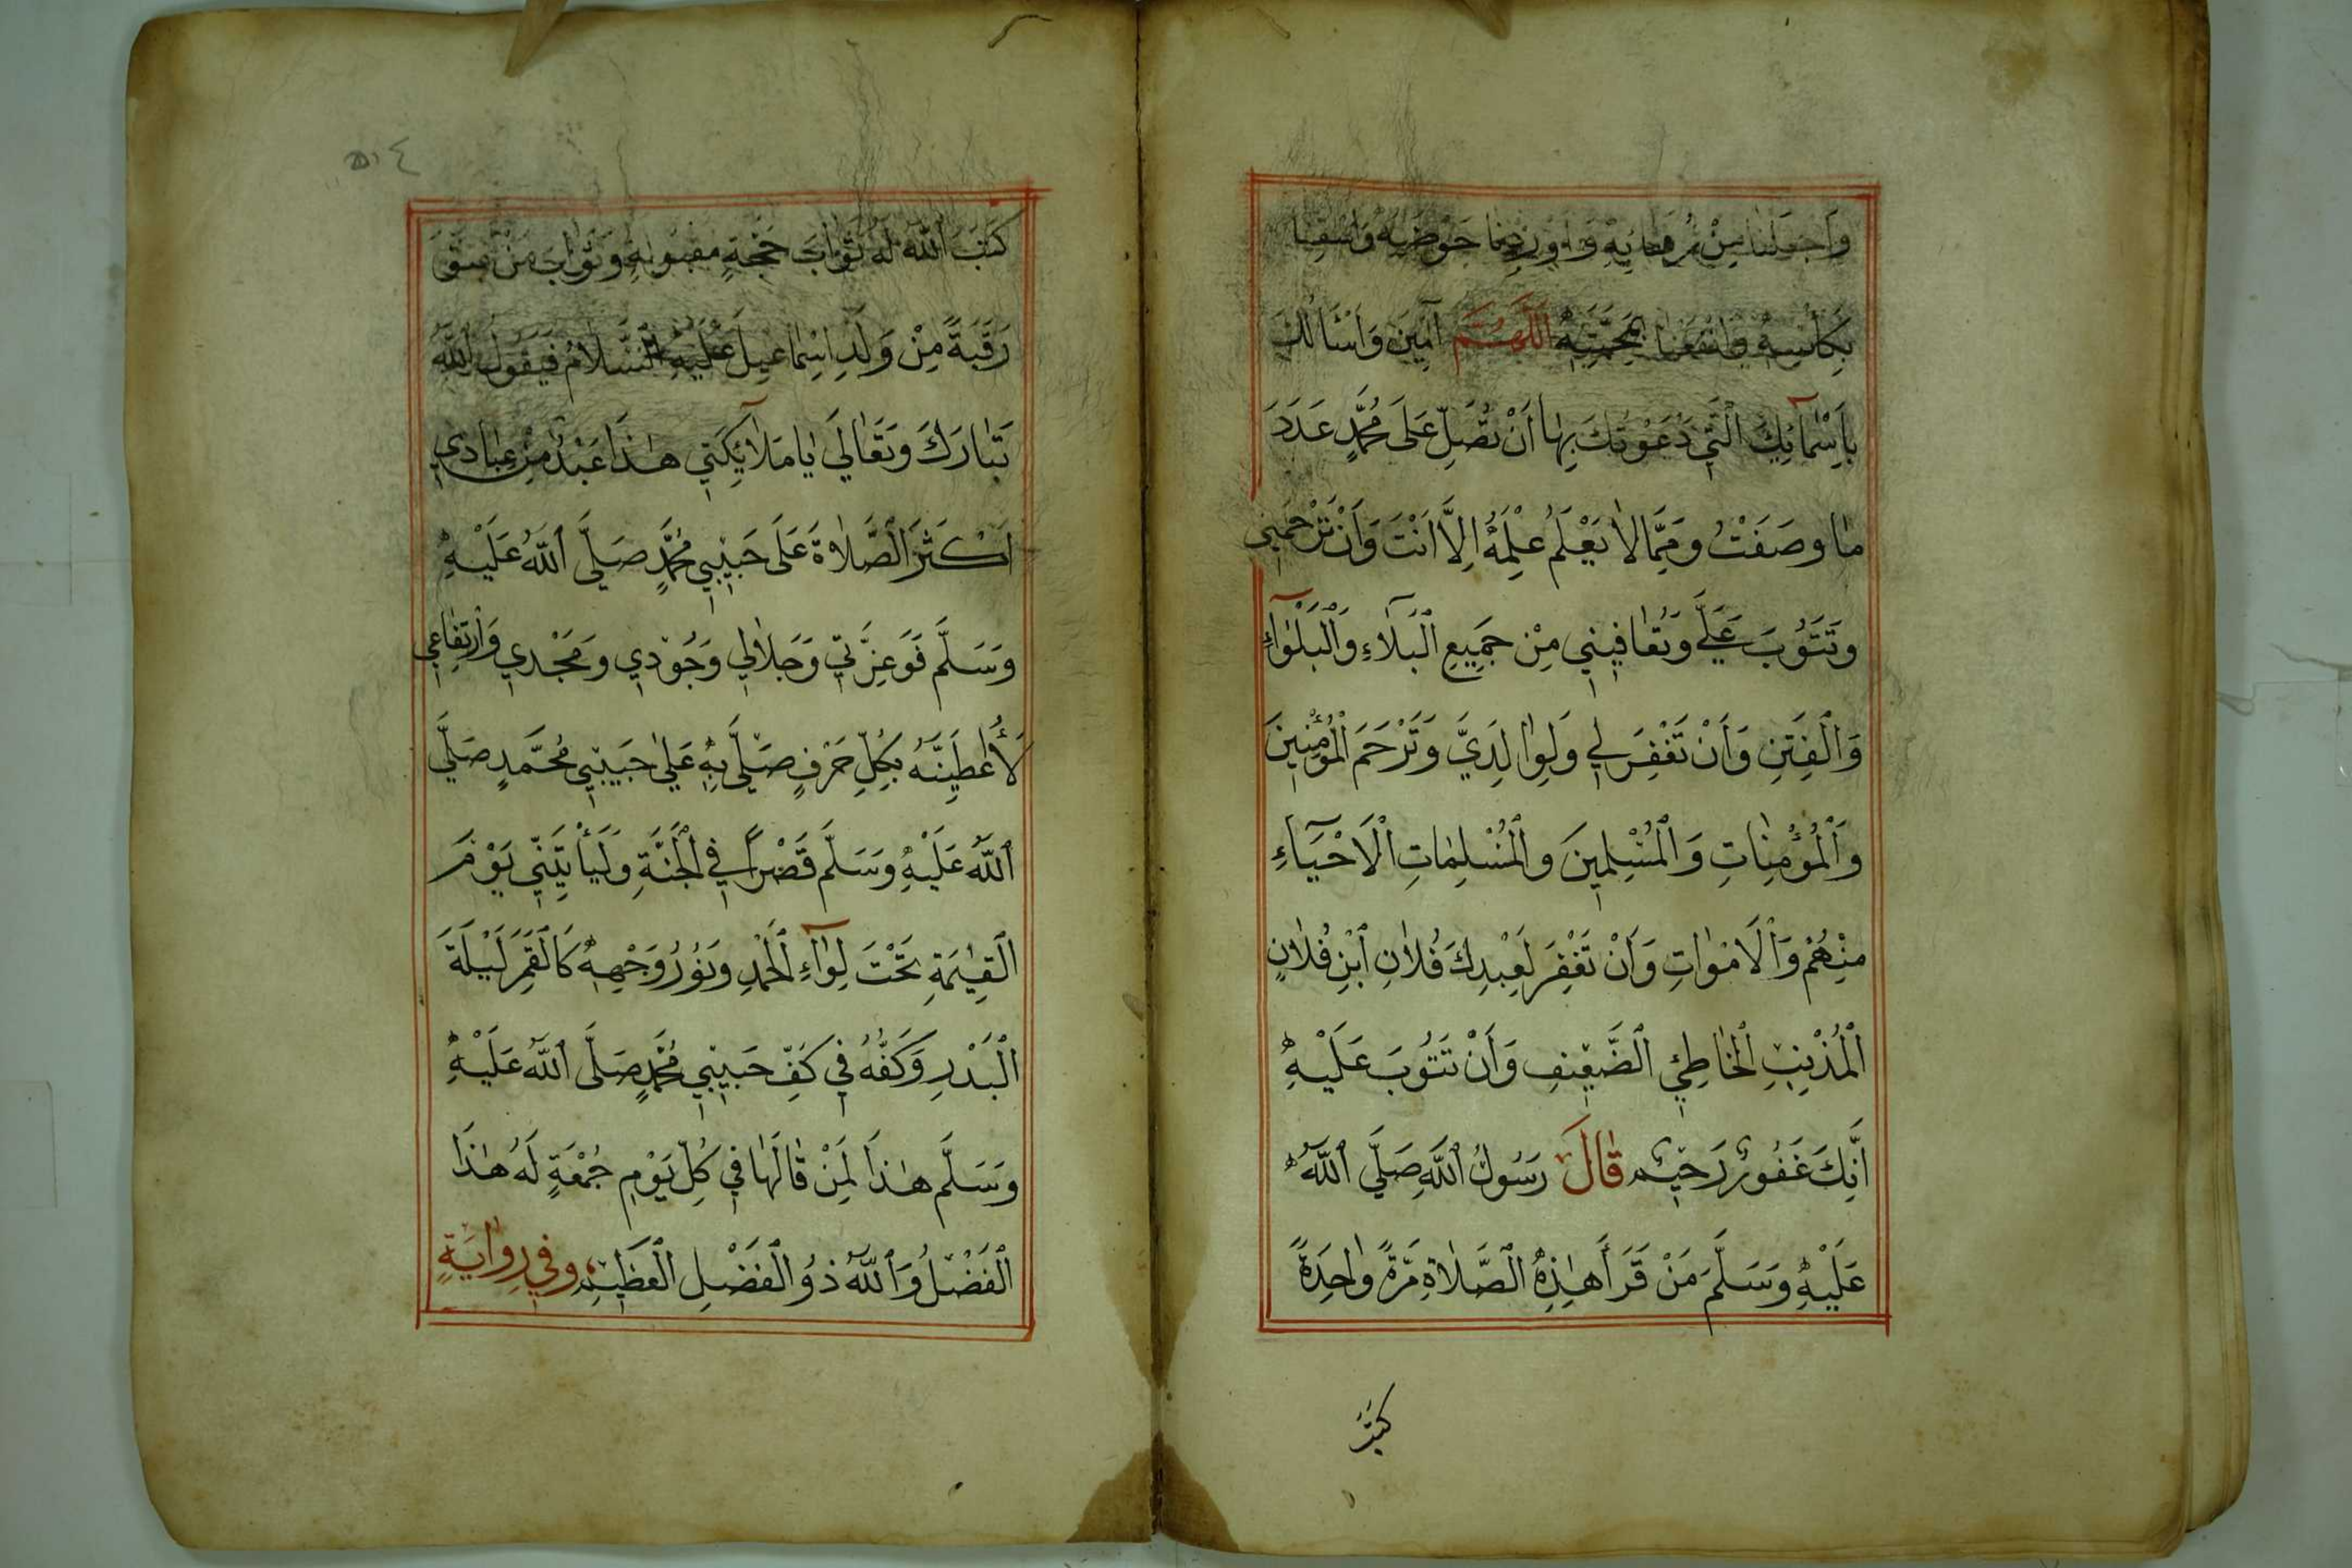 وَاجْعَلْنَا مِنْ رُفَقَائِهِ وَاَوْرِدْنَا حَوْضَهُ وَاسْقِنَا
بِكَأْسِهِ وَانْفَعْنَا بِمَحَبَّتِهِ اَللّٰهُمَّ اٰمِينَ وَاَسْأَلُكَ
بِاَسْمَآئِكَ الَّتِي دَعَوْتُكَ بِهَا اَنْ تُصَلِّ عَلَى مُحَمَّدٍ عَدَدَ
مَا وَصَفْتُ وَمِمَّا لَا يَعْلَمُ عِلْمَهُ اِلَّا اَنْتَ وَاَنْ تَرْحَمَنِي
وَتَتُوبَ عَلَيَّ وَتُعَافِيَنِي مِنْ جَمِيعِ الْبَلَآءِ وَالْبَلْوَآءِ
وَالْفِتَنِ وَاَنْ تَغْفِرَ لِي وَلِوَالِدَيَّ وَتَرْحَمَ الْمُؤْمِنِينَ
وَالْمُؤْمِنَاتِ وَالْمُسْلِمِينَ وَالْمُسْلِمَاتِ الْاَحْيَآءِ
مِنْهُمْ وَالْاَمْوَاتِ وَاَنْ تَغْفِرَ لِعَبْدِكَ فُلَانِ ابْنِ فُلَانٍ
الْمُذْنِبِ الْخَاطِئِ الضَّعِيفِ وَاَنْ تَتُوبَ عَلَيْهِ
اَنَّكَ غَفُورٌ رَحِيمٌ قَالَ رَسُولُ اللّٰهِ صَلَّى اللّٰهُ
عَلَيْهِ وَسَلَّمَ مَنْ قَرَأَ هٰذِهِ الصَّلَاةِ مَرَّةً وَاحِدَةً
كَتَبَ
٥١٤
كَتَبَ اللّٰهُ لَهُ ثَوَابَ حَجَّةٍ مَقْبُولَةٍ وَثَوَابَ مَنْ عَتَقَ
رَقَبَةً مِنْ وَلَدِ اِسْمَاعِيلَ عَلَيْهِ السَّلَامُ فَيَقُولُ اللّٰهُ
تَبَارَكَ وَتَعَالَى يَا مَلَآئِكَتِي هٰذَا عَبْدٌ مِنْ عِبَادِي
اَكْثَرَ الصَّلَاةَ عَلَى حَبِيبِي مُحَمَّدٍ صَلَّى اللّٰهُ عَلَيْهِ
وَسَلَّمَ فَوَعِزَّتِي وَجَلَالِي وَجُودِي وَمَجْدِي وَارْتِفَاعِي
لَأُعْطِيَنَّهُ بِكُلِّ حَرْفٍ صَلَّى بِهِ عَلَى حَبِيبِي مُحَمَّدٍ صَلَّى
اللّٰهُ عَلَيْهِ وَسَلَّمَ قَصْرًا فِي الْجَنَّةِ وَلَيَأْتِيَنِّي يَوْمَ
الْقِيٰمَةِ تَحْتَ لِوَآءِ الْحَمْدِ وَنُورُ وَجْهِهِ كَالْقَمَرِ لَيْلَةَ
الْبَدْرِ وَكَفُّهُ فِي كَفِّ حَبِيبِي مُحَمَّدٍ صَلَّى اللّٰهُ عَلَيْهِ
وَسَلَّمَ هٰذَا لِمَنْ قَالَهَا فِي كُلِّ يَوْمِ جُمْعَةٍ لَهُ هٰذَا
الْفَضْلُ وَاللّٰهُ ذُو الْفَضْلِ الْعَظِيمِ وَفِي رِوَايَةٍ